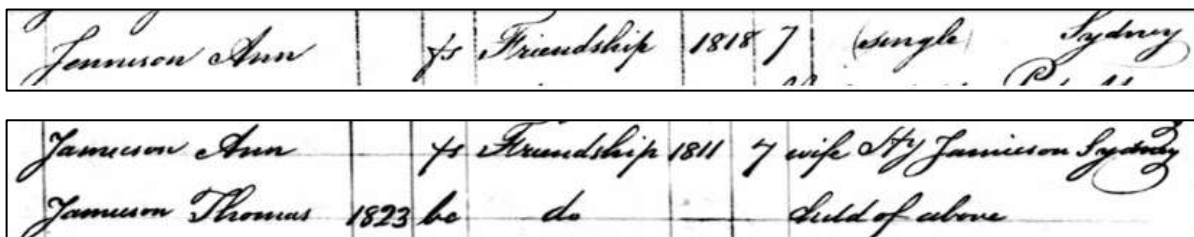 Jennison Ann fs Friendship 1818 7 (single) Sydney
Jamieson Ann fs Friendship 1811 7 wife Hy Jamieson Sydney
Jamieson Thomas 1823 bc do child of above